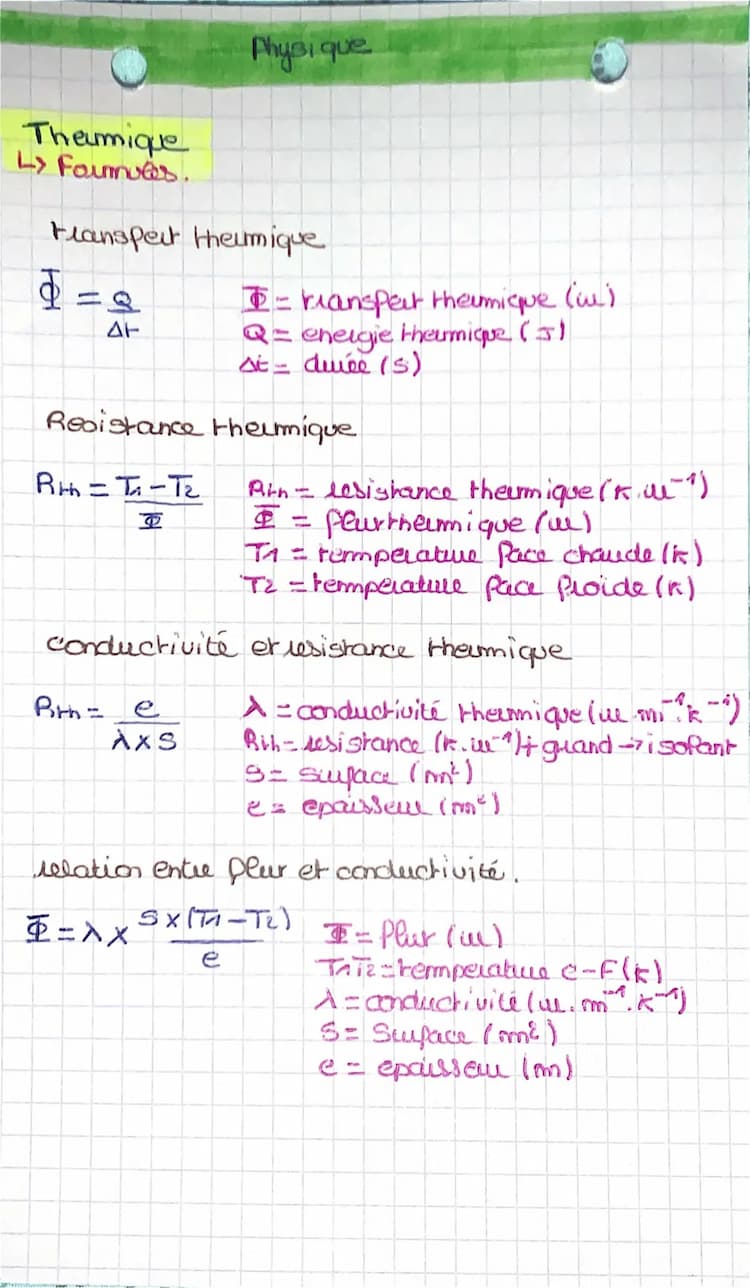 Physique
Thermique
↳ Formules.
transfert thermique
Φ = Q / Δt
Φ = transfert thermique (w)
Q = energie thermique (J)
Δt = durée (s)
Resistance thermique
Rth = T1 - T2 / Φ
Rth = resistance thermique (K.w⁻¹)
Φ = flux thermique (w)
T1 = temperature face chaude (k)
T2 = temperature face froide (k)
conductivité et resistance thermique
Rth = e / λ x S
λ = conductivité thermique (w.m⁻¹.k⁻¹)
Rth = resistance (k.w⁻¹) + grand → isolant
S = surface (m²)
e = epaisseur (m²)
relation entre flux et conductivité.
Φ = λ x S x (T1 - T2) / e
Φ = flux (w)
T1 T2 = temperature c-F (k)
λ = conductivité (w.m⁻¹.k⁻¹)
S = Surface (m²)
e = epaisseur (m)